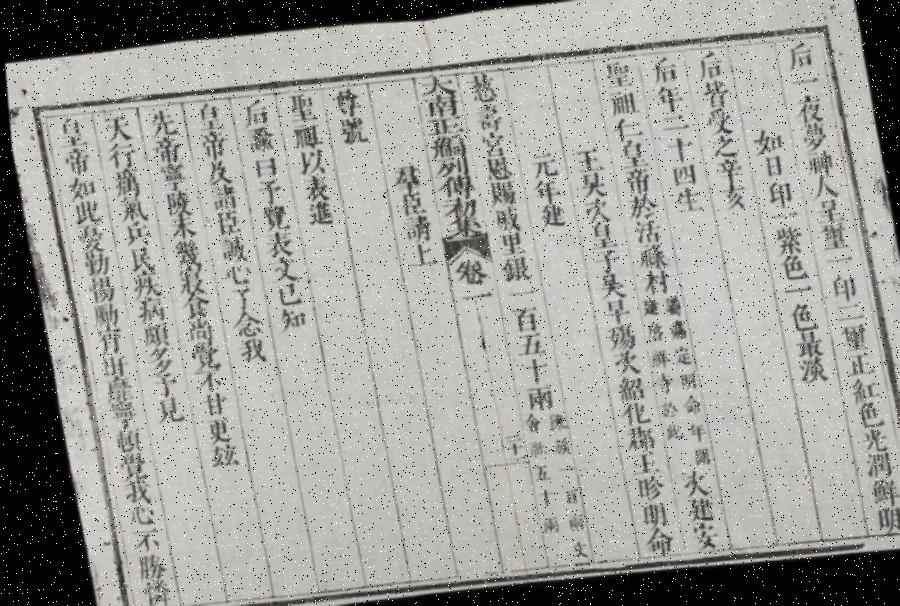 后一夜夢神人呈璽一印二璽正紅色光潤鮮明
如日印一紫色一色最淡
后皆受之辛亥
后年二十四生
聖祖仁皇帝於活祿村 嘉定 明命年間 建 寺於此 次建安
王昊次皇子昊早殤次紹化郡王昣明命
元年建
慈壽宮恩賜戒甲銀一百五十兩
大南正編列傳初集 卷二
羣臣請上
尊號
聖祖以表進
后諭曰予覽表文已知
皇帝及諸臣誠心了念我
先帝寧陵未幾寢食尚覺不甘更茲
天行癘氣兵民疾病頗多予見
皇帝如此憂勤惕勵宵旰靡寧頓覺我心不勝